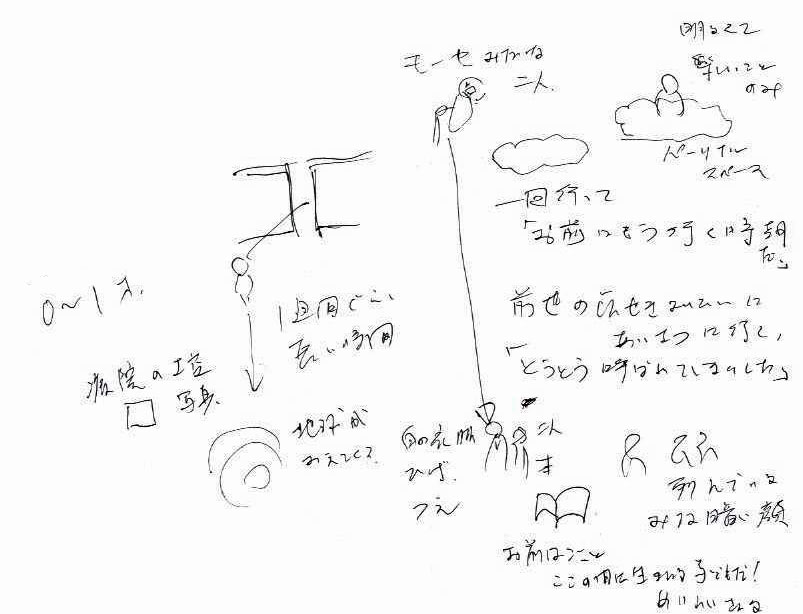 明るくて
軽いこと
のみ
モーセみたいな
二人
スペース
一回行って
「お前はもう行く時期
だ」
0〜1才
1週間ぐらい
長い時間
前世の
あいさつに行く
「とうとう呼ばれてしまいました」
病院の
写真
地球が
みえてくる
白い衣服
ひげ
つえ
二人
本
並んでいる
みな暗い顔
お前は
ここの
に生まれる子どもだ!
めいれいされる